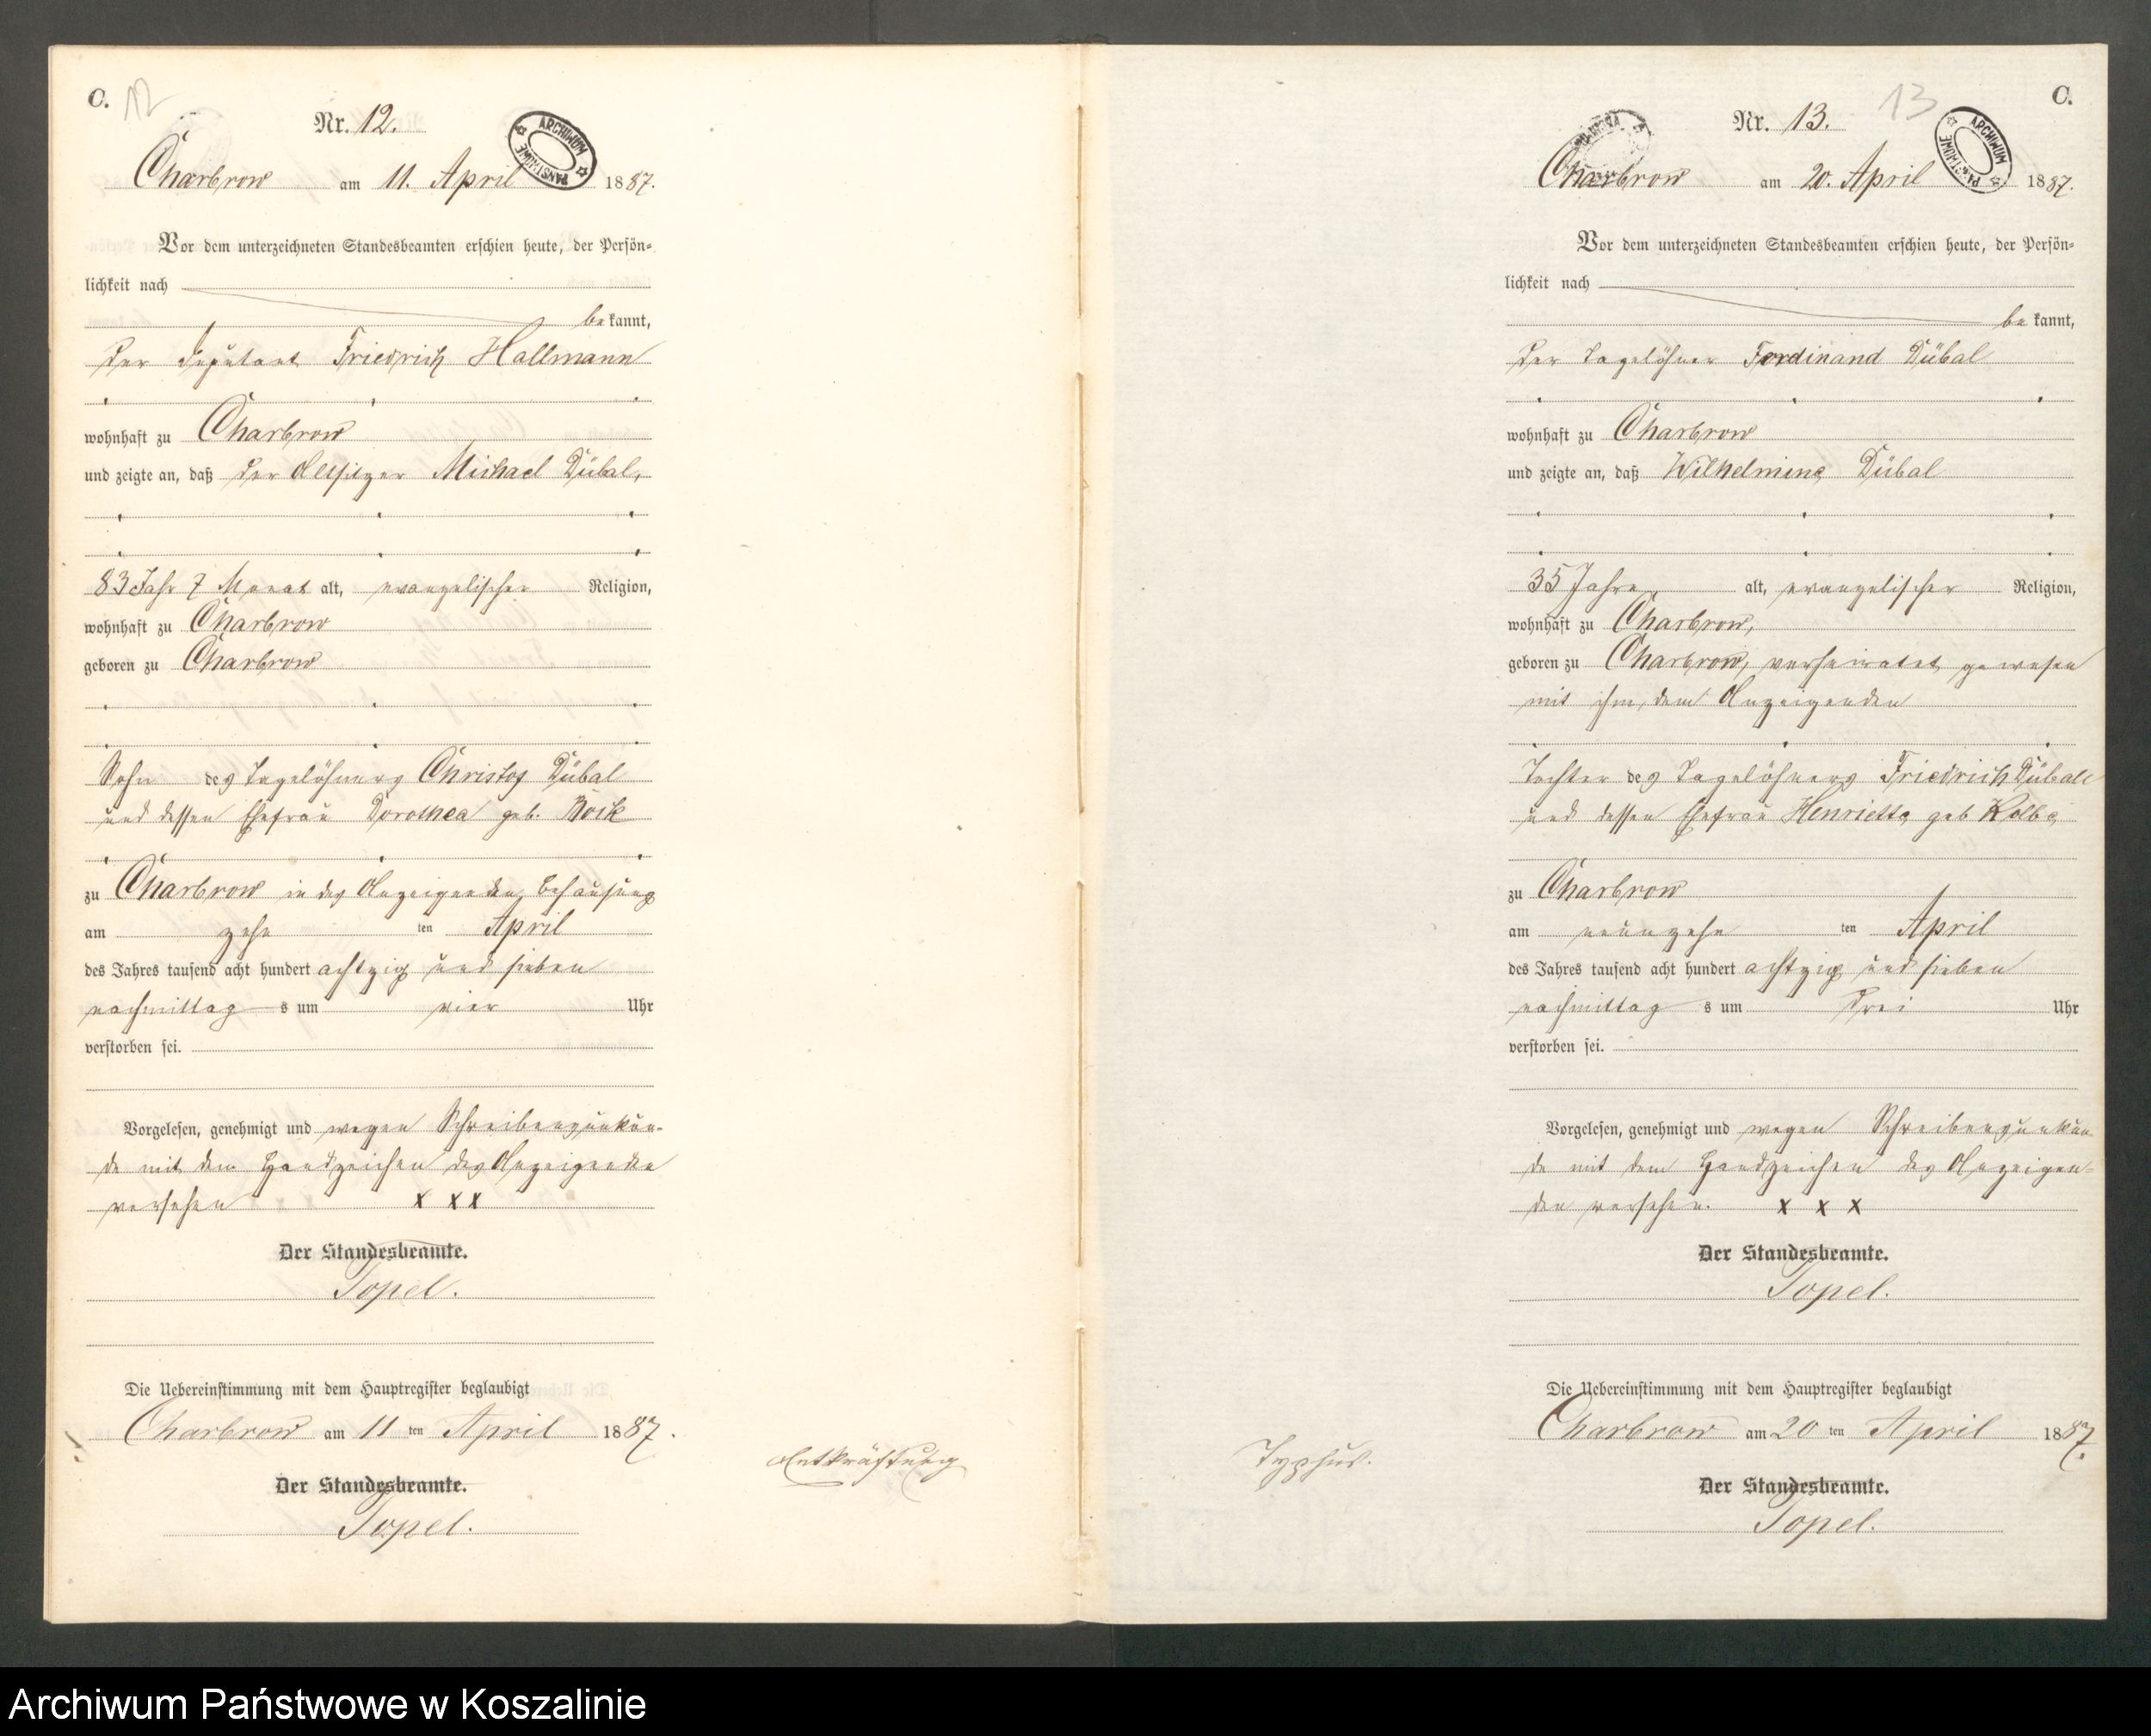 C. 12
Nr. 12.
ARCHIWUM PAŃSTWOWE
Charbrow am 11. April 1887.
Vor dem unterzeichneten Standesbeamten erschien heute, der Persön-
lichkeit nach
bekannt,
der Deputant Friedrich Hallmann
wohnhaft zu Charbrow
und zeigte an, daß der Altsitzer Michael Dübal,
83 Jahr 7 Monat alt, evangelischer Religion,
wohnhaft zu Charbrow
geboren zu Charbrow
Sohn des Tagelöhners Christof Dübal
und dessen Ehefrau Dorothea geb.
zu Charbrow in des Anzeigenden Behausung
am zehn ten April
des Jahres tausend acht hundert achtzig und sieben
nachmittag s um vier Uhr
verstorben sei.
Vorgelesen, genehmigt und wegen Schreibensunkun-
de mit dem Handzeichen des Anzeigenden
versehen x x x
Der Standesbeamte.
Topel.
Die Uebereinstimmung mit dem Hauptregister beglaubigt
Charbrow am 11 ten April 1887.
Der Standesbeamte.
Topel.
Entkräftung
13 C.
Nr. 13.
ARCHIWUM PAŃSTWOWE
Charbrow am 20. April 1887.
Vor dem unterzeichneten Standesbeamten erschien heute, der Persön-
lichkeit nach
be kannt,
der Tagelöhner Ferdinand Dübal
wohnhaft zu Charbrow
und zeigte an, daß Wilhelmine Dübal
35 Jahre alt, evangelischer Religion,
wohnhaft zu Charbrow,
geboren zu Charbrow, verheiratet gewesen
mit ihm, dem Anzeigenden
Tochter des Tagelöhners Friedrich Dübal
und dessen Ehefrau Henriette geb Kolbe
zu Charbrow
am neunzehn ten April
des Jahres tausend acht hundert achtzig und sieben
nachmittag s um drei Uhr
verstorben sei.
Vorgelesen, genehmigt und wegen Schreibensunkun
de mit dem Handzeichen des Anzeigen-
den versehen. x x x
Der Standesbeamte.
Topel.
Die Uebereinstimmung mit dem Hauptregister beglaubigt
Charbrow am 20 ten April 1887.
Der Standesbeamte.
Topel.
Typhus.
Archiwum Państwowe w Koszalinie